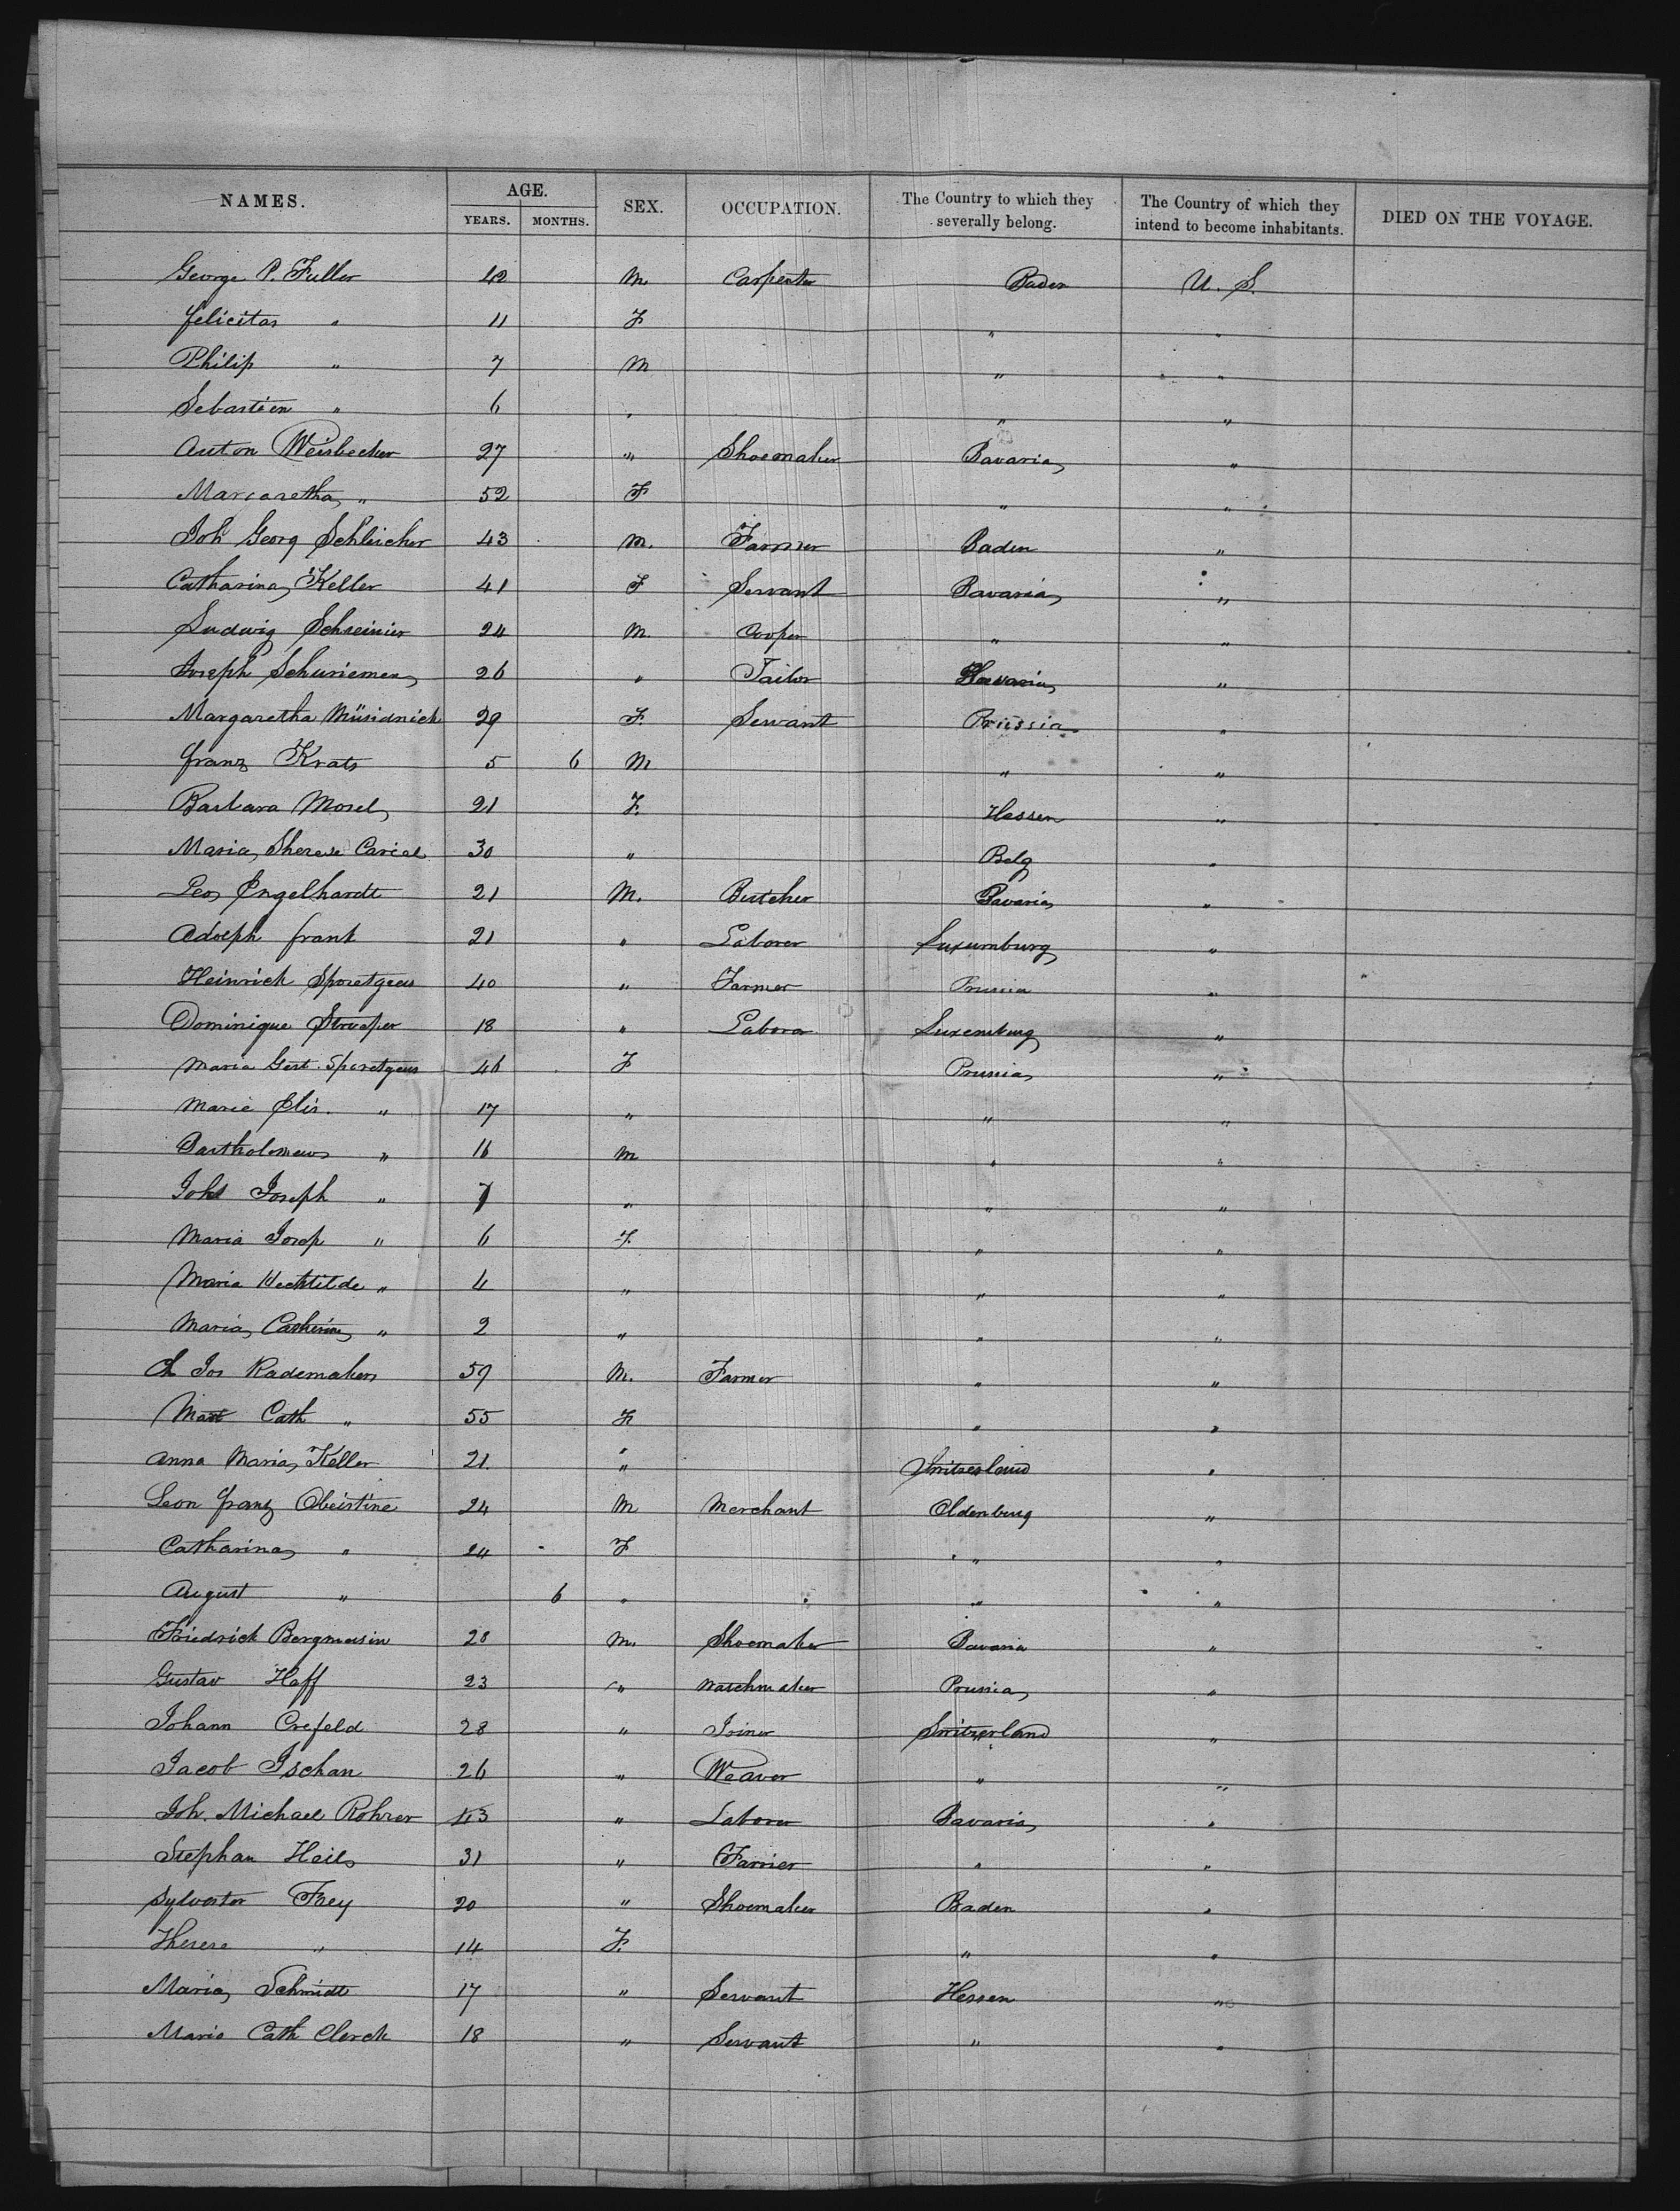 NAMES. AGE. SEX. OCCUPATION. The Country to which they severally belong. The Country of which they intend to become inhabitants. DIED ON THE VOYAGE.
YEARS. MONTHS.
George P. Fuller 42 M. Carpenter Baden U. S.
Felicitas " 11 F " "
Philip " 7 M " "
Sebastien " 6 " " "
Anton Weisbecker 27 " Shoemaker Bavaria "
Margaretha " 52 F " "
Joh Georg Schleicher 43 M. Farmer Baden "
Catharina Keller 41 F Servant Bavaria "
Ludwig Schreinier 24 M. Cooper " "
Joseph Schuriemen 26 " Tailor Bavaria "
Margaretha Müsidnich 29 F. Servant Prüssia "
Franz Krats 5 6 M " "
Barbara Mosel 21 F. Hessen "
Maria Therese Carial 30 " Belg "
Leo Engelhardt 21 M. Butcher Bavaria "
Adolph Frank 21 " Laborer Luxumburg "
Heinrich Sporetgens 40 " Farmer Prussia "
Dominique Strooper 18 " Labora Luxemburg "
Maria Gert. Sporetgens 46 F Prussia "
Marie Elis. " 17 " " "
Bartholomeus " 16 M " "
Johs Joseph " 7 " " "
Maria Josep " 6 F. " "
Maria Mechtilde " 4 " " "
Maria Catherina " 2 " " "
Ch Jos Rademakers 59 M. Farmer " "
Mart Cath " 55 F. " "
Anna Maria Keller 21. " Switzerland "
Leon Franz Obeistine 24 M Merchant Oldenburg "
Catharina " 24 F " "
August " 6 " " "
Friedrich Bergmeisin 28 M. Shoemaker Bavaria "
Gustav Haff 23 " Watchmaker Prussia "
Johann Crefeld 28 " Joiner Switzerland "
Jacob Ischan 26 " Weaver " "
Joh. Michael Rohrer 43 " Laborer Bavaria "
Stephan Heils 31 " Farrier " "
Sylvester Frey 20 " Shoemaker Baden "
Therese " 14 F. " "
Maria Schmidt 17 " Servant Hessen "
Maria Cath Clerch 18 " Servant " "